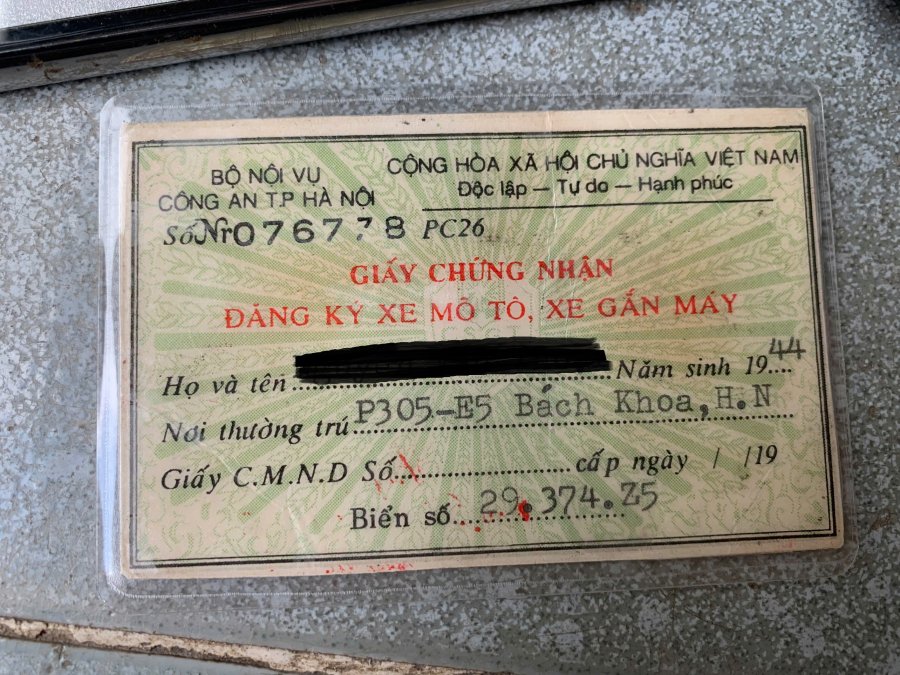 BỘ NỘI VỤ
CÔNG AN T.P HÀ NỘI
CỘNG HÒA XÃ HỘI CHỦ NGHĨA VIỆT NAM
Độc lập — Tự do — Hạnh phúc
Số Nr 076778 PC26
GIẤY CHỨNG NHẬN
ĐĂNG KÝ XE MÔ TÔ, XE GẮN MÁY
Họ và tên Năm sinh 1944
Nơi thường trú P305-E5 Bách Khoa, H.N
Giấy C.M.N.D Số cấp ngày / /19
Biển số 29.374.Z5